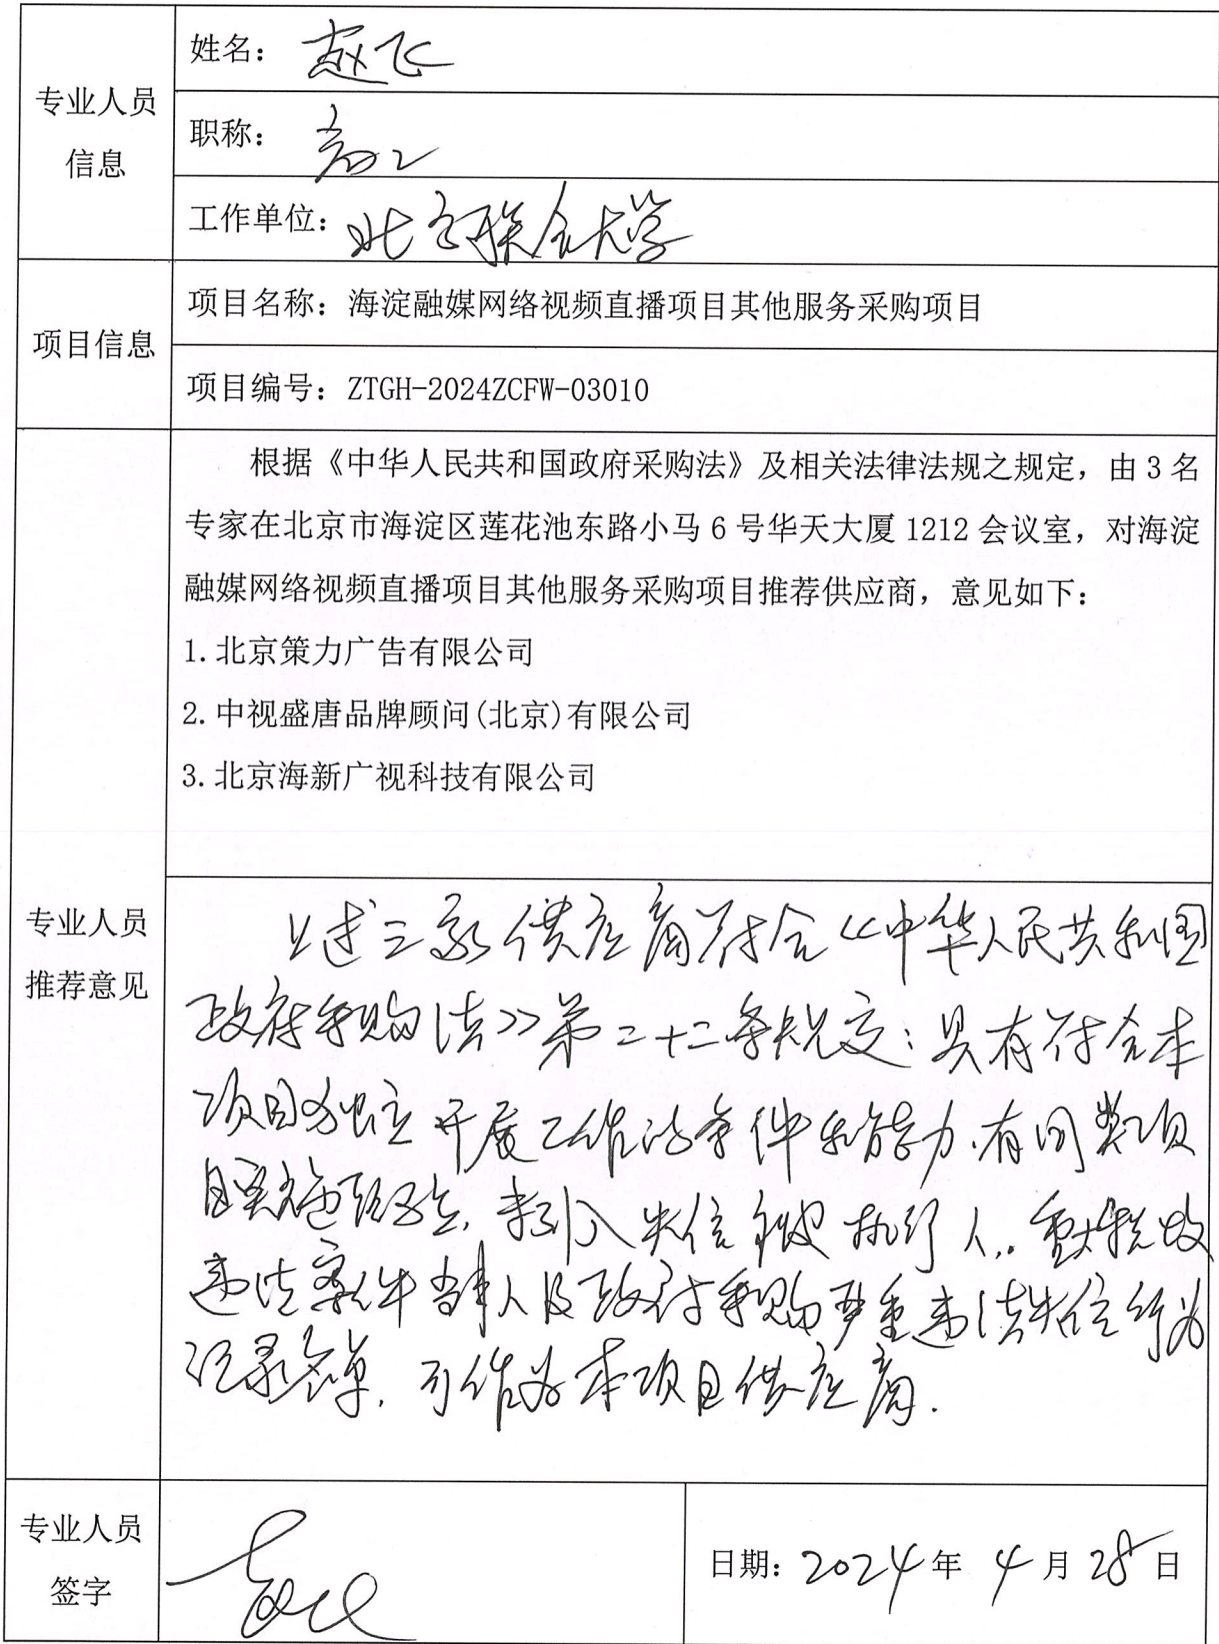 专业人员
信息
姓名：赵飞
职称：高工
工作单位：北京联合大学
项目信息
项目名称：海淀融媒网络视频直播项目其他服务采购项目
项目编号：ZTGH-2024ZCFW-03010
专业人员
推荐意见
根据《中华人民共和国政府采购法》及相关法律法规之规定，由 3 名
专家在北京市海淀区莲花池东路小马 6 号华天大厦 1212 会议室，对海淀
融媒网络视频直播项目其他服务采购项目推荐供应商，意见如下：
1.北京策力广告有限公司
2.中视盛唐品牌顾问(北京)有限公司
3.北京海新广视科技有限公司
上述三家供应商符合《中华人民共和国
政府采购法》第二十二条规定：具有符合本
项目独立开展工作的条件和能力，有同类项
目实施经验，未列入失信被执行人、重大税收
违法案件当事人及政府采购严重违法失信行为
记录名单，可作为本项目供应商.
专业人员
签字
赵飞
日期：2024年 4月 28日